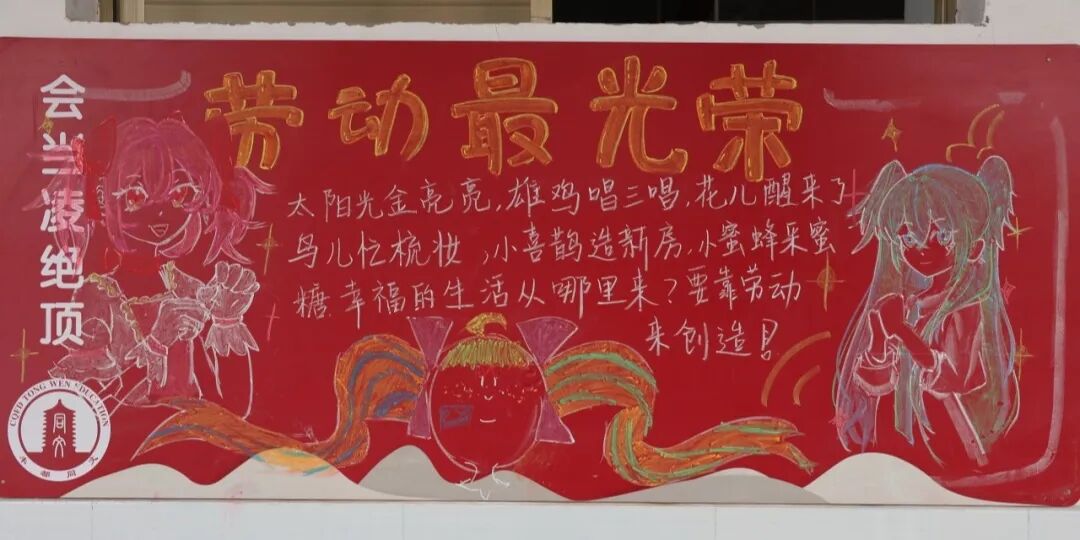 劳动最光荣
会当凌绝顶
太阳光金亮亮,雄鸡唱三唱,花儿醒来了
鸟儿忙梳妆,小喜鹊造新房,小蜜蜂采蜜
糖,幸福的生活从哪里来?要靠劳动
来创造!
CQFD TONG WEN EDUCATION
同文